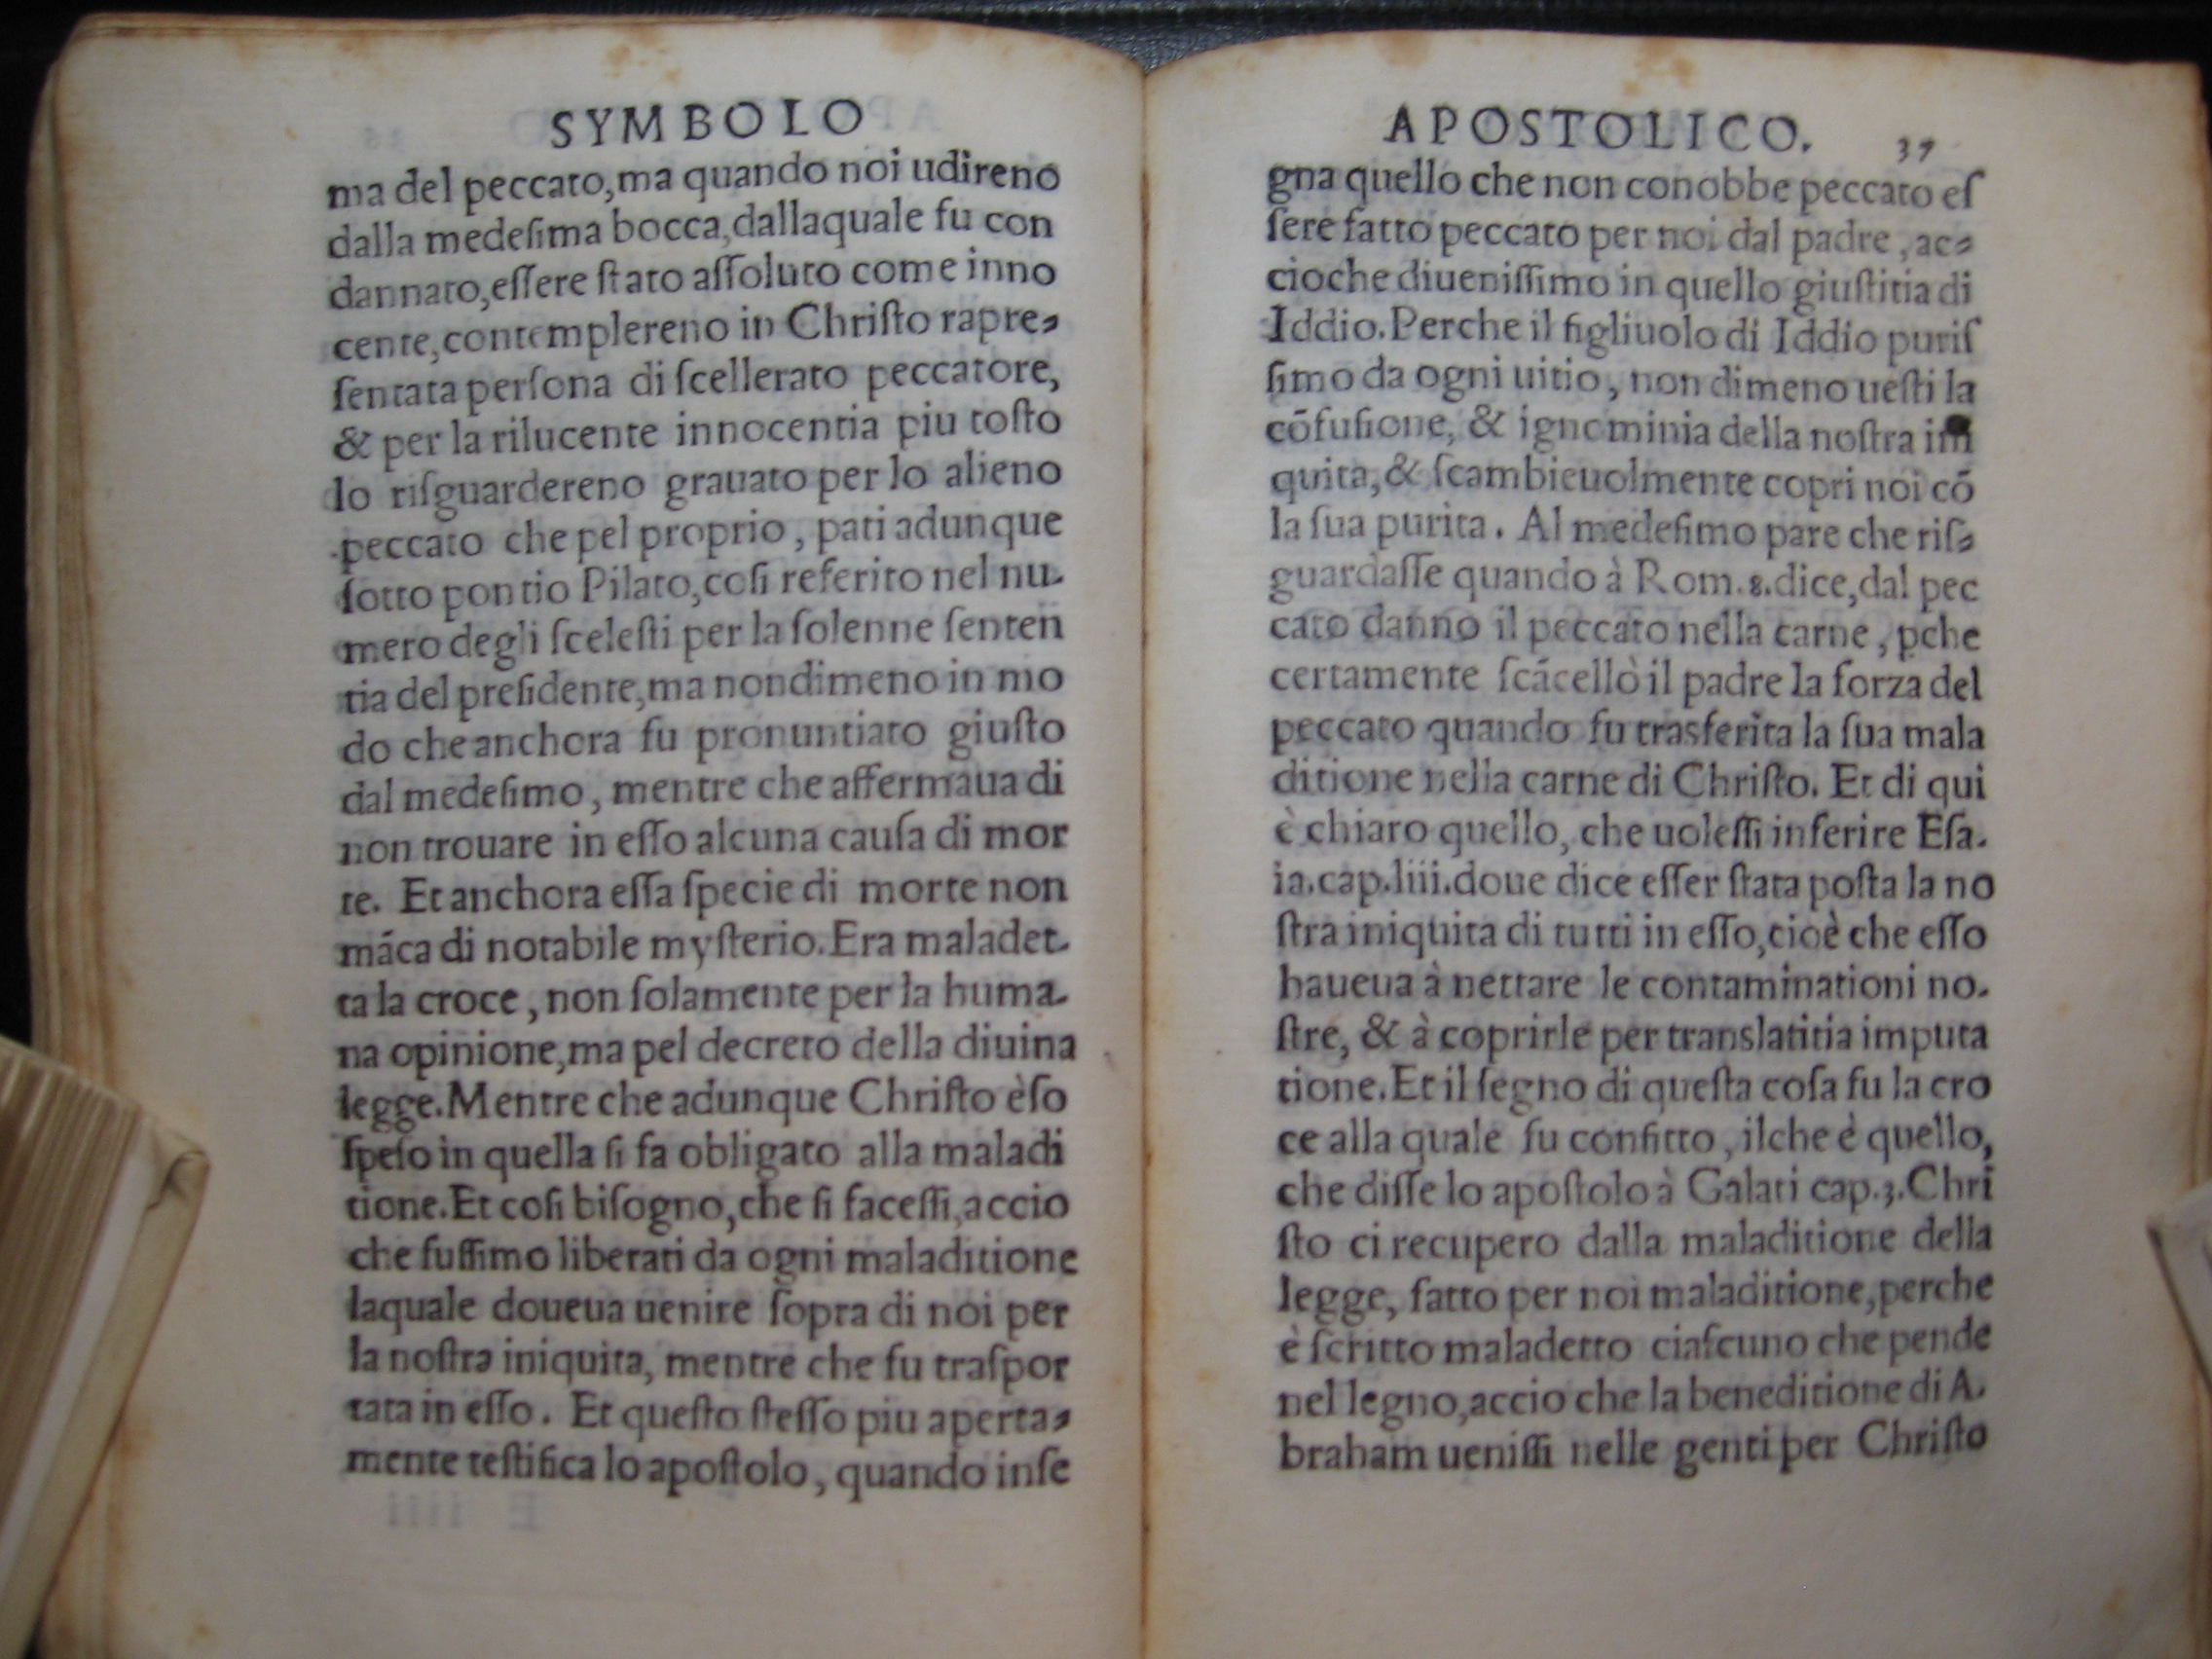 SYMBOLO
ma del peccato,ma quando noi udireno
dalla medeſima bocca,dallaquale fu con
dannato,eſſere ſtato aſſoluto come inno
cente,contemplereno in Chriſto rapre⸗
ſentata perſona di ſcellerato peccatore,
& per la rilucente innocentia piu toſto
lo riſguardereno grauato per lo alieno
peccato che pel proprio, pati adunque
ſotto pontio Pilato,coſi referito nel nu-
mero degli ſceleſti per la ſolenne ſenten
tia del preſidente,ma nondimeno in mo
do che anchora fu pronuntiato giuſto
dal medeſimo, mentre che affermaua di
non trouare in eſſo alcuna cauſa di mor
te. Et anchora eſſa ſpecie di morte non
mãca di notabile myſterio.Era maladet-
ta la croce, non ſolamente per la huma-
na opinione,ma pel decreto della diuina
legge.Mentre che adunque Chriſto è ſo
ſpeſo in quella ſi fa obligato alla maladi
tione.Et coſi biſogno,che ſi faceſſi,accio
che fuſſimo liberati da ogni maladitione
laquale doueua uenire ſopra di noi per
la noſtra iniquita, mentre che fu traſpor
tata in eſſo. Et queſto ſteſſo piu aperta⸗
mente teſtifica lo apoſtolo, quando inſe
APOSTOLICO. 37
gna quello che non conobbe peccato eſ
ſere fatto peccato per noi dal padre, ac⸗
cioche diueniſſimo in quello giuſtitia di
Iddio.Perche il figliuolo di Iddio puriſ
ſimo da ogni uitio, non dimeno ueſti la
cõfuſione, & ignominia della noſtra ini
quita,& ſcambieuolmente copri noi cõ
la ſua purita. Al medeſimo pare che riſ⸗
guardaſſe quando à Rom.8.dice,dal pec
cato danno il peccato nella carne, ꝑche
certamente ſcãcellò il padre la forza del
peccato quando fu trasferita la ſua mala
ditione nella carne di Chriſto. Et di qui
è chiaro quello, che uoleſſi inferire Eſa-
ia.cap.liii.doue dice eſſer ſtata poſta la no
ſtra iniquita di tutti in eſſo,cioè che eſſo
haueua à nettare le contaminationi no-
ſtre, & à coprirle per translatitia imputa
tione.Et il ſegno di queſta coſa fu la cro
ce alla quale fu confitto, ilche è quello,
che diſſe lo apoſtolo à Galati cap.3.Chri
ſto ci recupero dalla maladitione della
legge, fatto per noi maladitione,perche
è ſcritto maladetto ciaſcuno che pende
nel legno,accio che la beneditione di A-
braham ueniſſi nelle genti per Chriſto